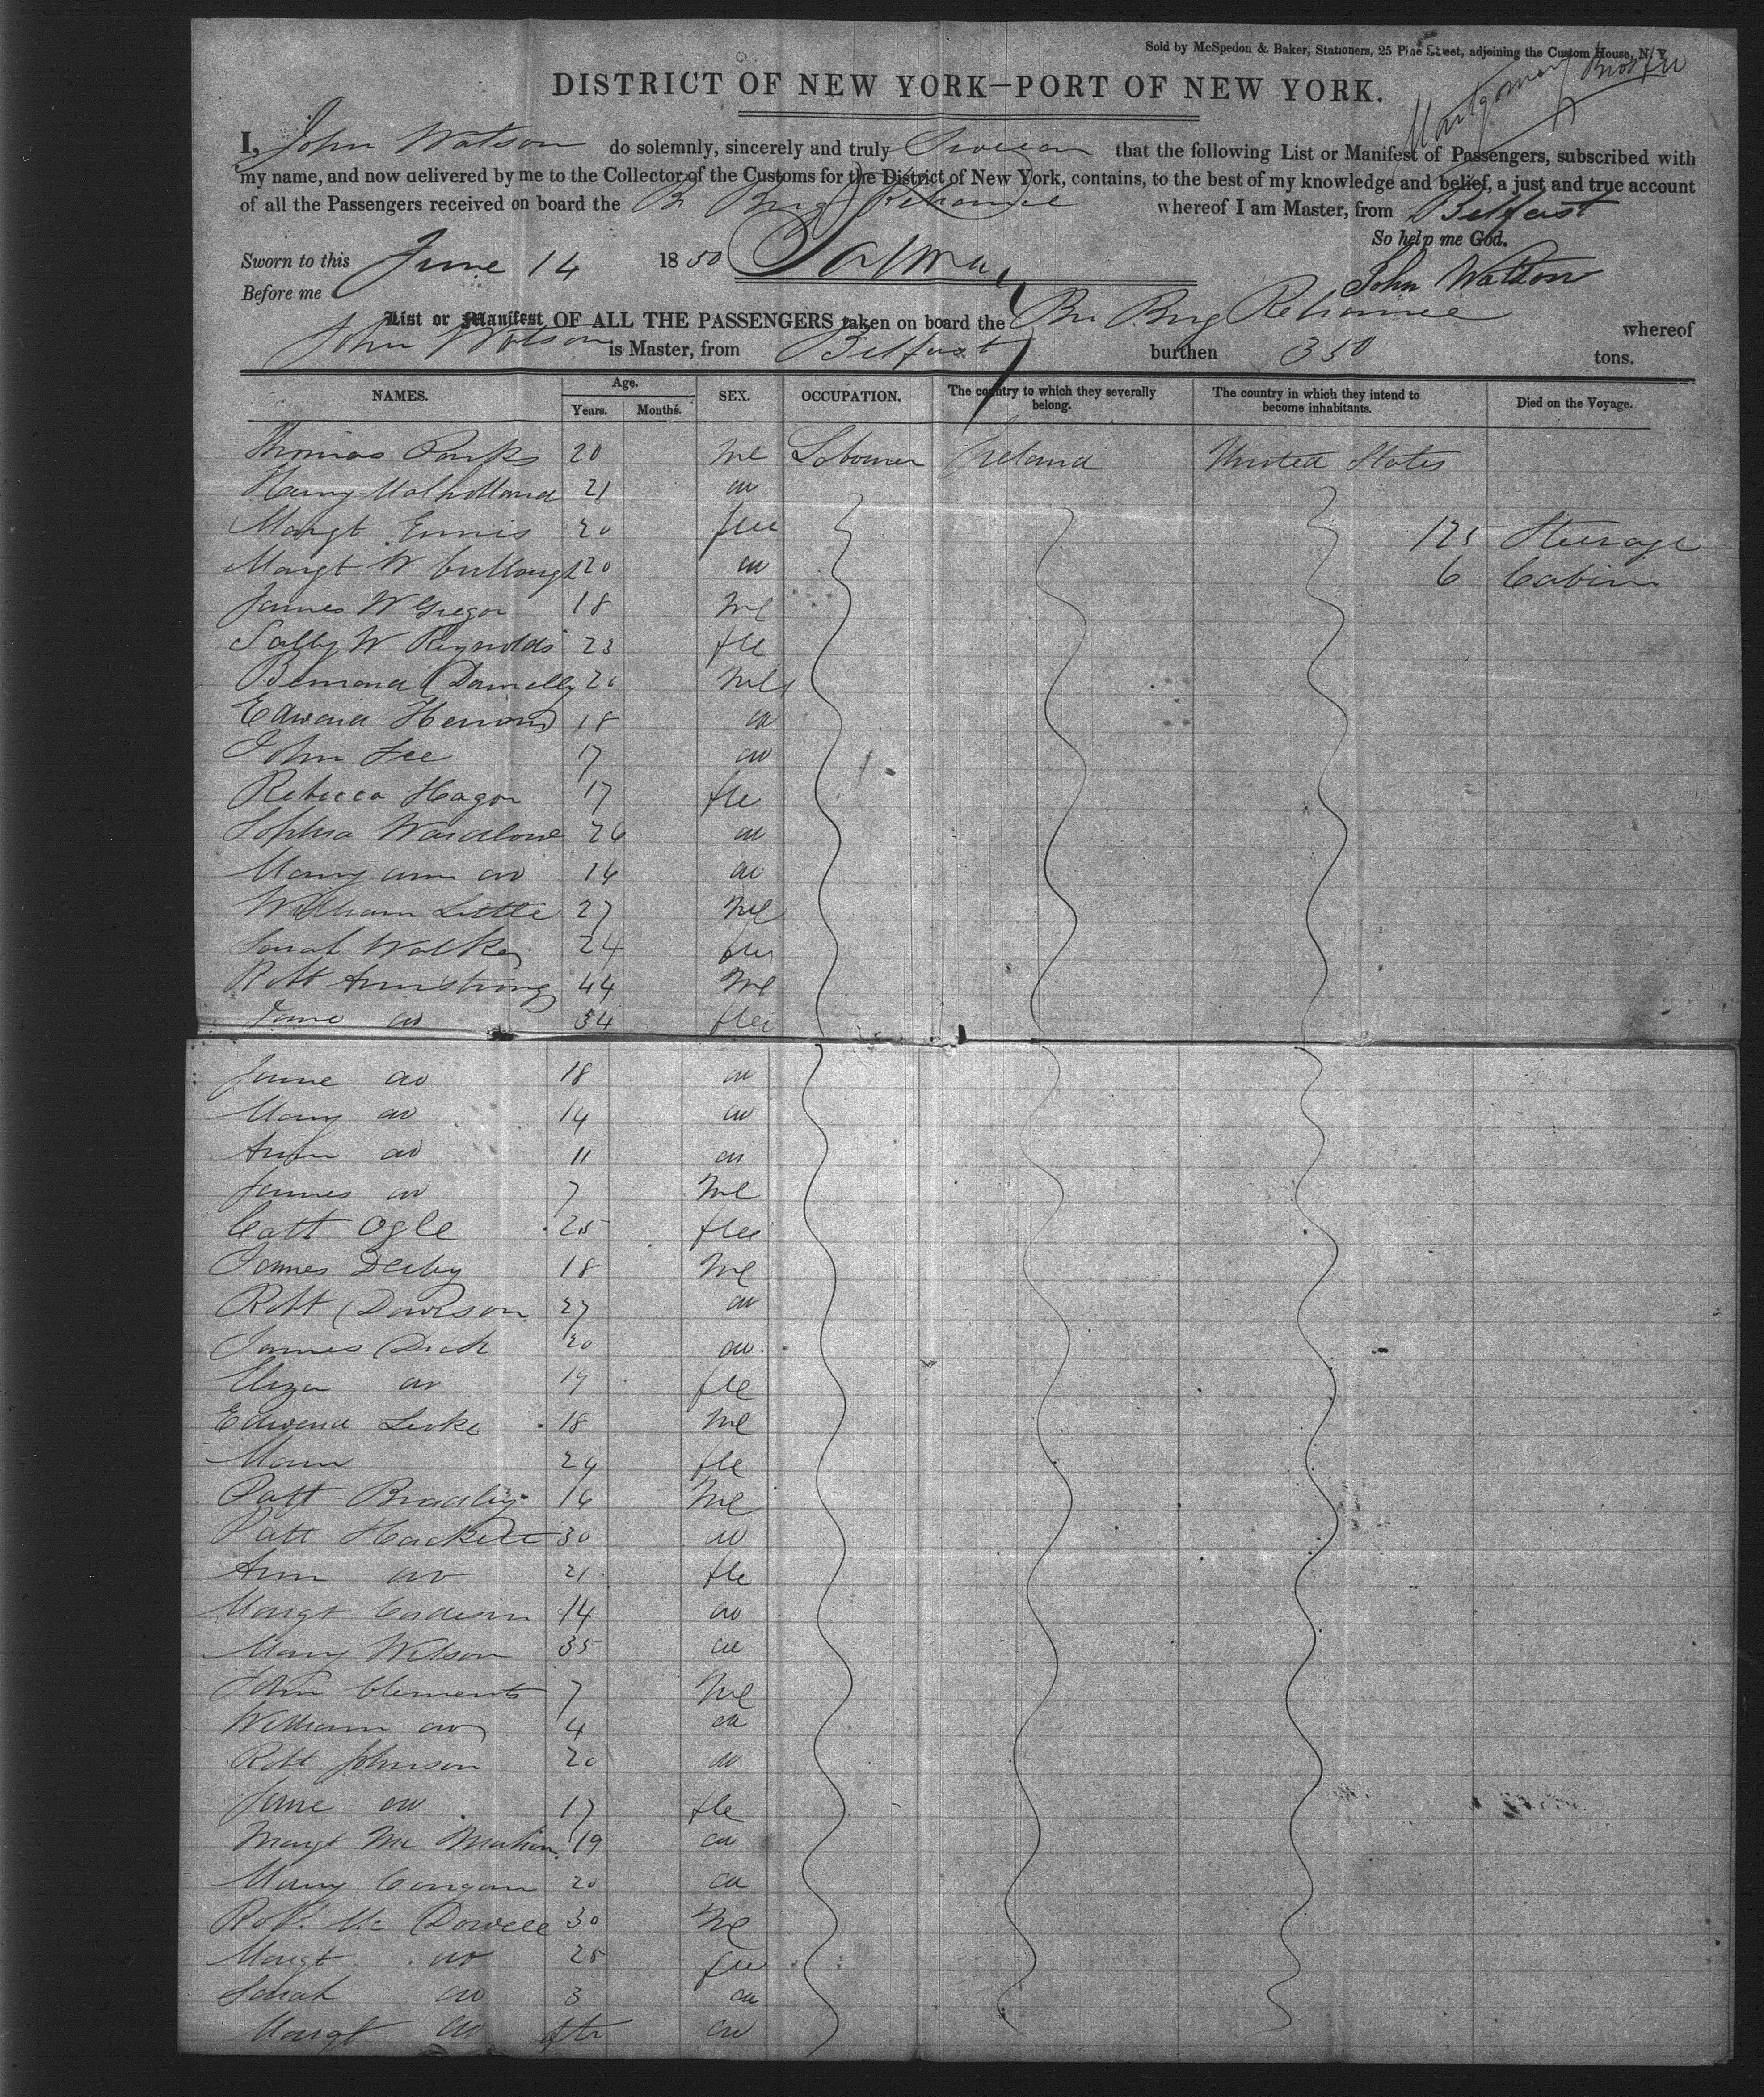 Sold by McSpedon & Baker, Stationers, 25 Pine Street, adjoining the Custom House, N. Y.
Montgomery Bros
DISTRICT OF NEW YORK—PORT OF NEW YORK.
I, John Watson do solemnly, sincerely and truly Swear that the following List or Manifest of Passengers, subscribed with
my name, and now delivered by me to the Collector of the Customs for the District of New York, contains, to the best of my knowledge and belief, a just and true account
of all the Passengers received on board the Br Brig Reliance whereof I am Master, from Belfast
So help me God.
Sworn to this June 14 1850 John Watson
Before me
List or Manifest OF ALL THE PASSENGERS taken on board the Br. Brig Reliance whereof
John Watson is Master, from Belfast burthen 350 tons.
NAMES. Age. Years. Months. SEX. OCCUPATION. The country to which they severally belong. The country in which they intend to become inhabitants. Died on the Voyage.
Thomas Parks 20 Me Labourer Ireland United States
Henry Mulholland 21 do
Margt Ennis 20 fle 125 Steerage
Margt 20 do 6 Cabin
James McGregor 18 Me
Sally Mc Reynolds 23 fle
Bernard Donnelly 26 Me
Edward Herron 18 do
John Lee 17 do
Rebecca Hagan 17 fle
Sophia Wardlow 26 do
Mary ann do 16 do
William Little 27 Me
Sarah Walker 24 fle
Robt Armstrong 44 Me
Jane do 34 fle
Jane do 18 do
Mary do 14 do
Ann do 11 do
James do 7 Me
Catt Ogle 25 fle
James Derby 18 Me
Robt Dawson 27 do
James Dick 20 do
Eliza do 19 fle
Edward 18 Me
24 fle
Patt Bradley 16 Me
Patt Hackett 30 do
Ann do 21 fle
Margt 14 do
Mary Wilson 35 do
John Clements 7 Me
William do 4 do
Robt Johnson 20 do
Jane do 17 fle
Margt Mc Mahon 19 do
Mary 20 do
Robt. Mc Dowell 30 Me
Margt do 25 fle
Sarah do 3 do
Margt do do